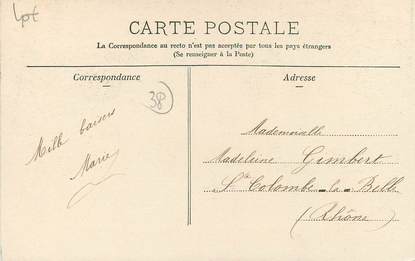 Lpt
CARTE POSTALE
La Correspondance au recto n'est pas acceptée par tous les pays étrangers
(Se renseigner à la Poste)
Correspondance
Adresse
38
Mille baisers
Marie
Mademoiselle
Madeleine Gimbert
Ste Colombe-la-Belle
(Rhône)